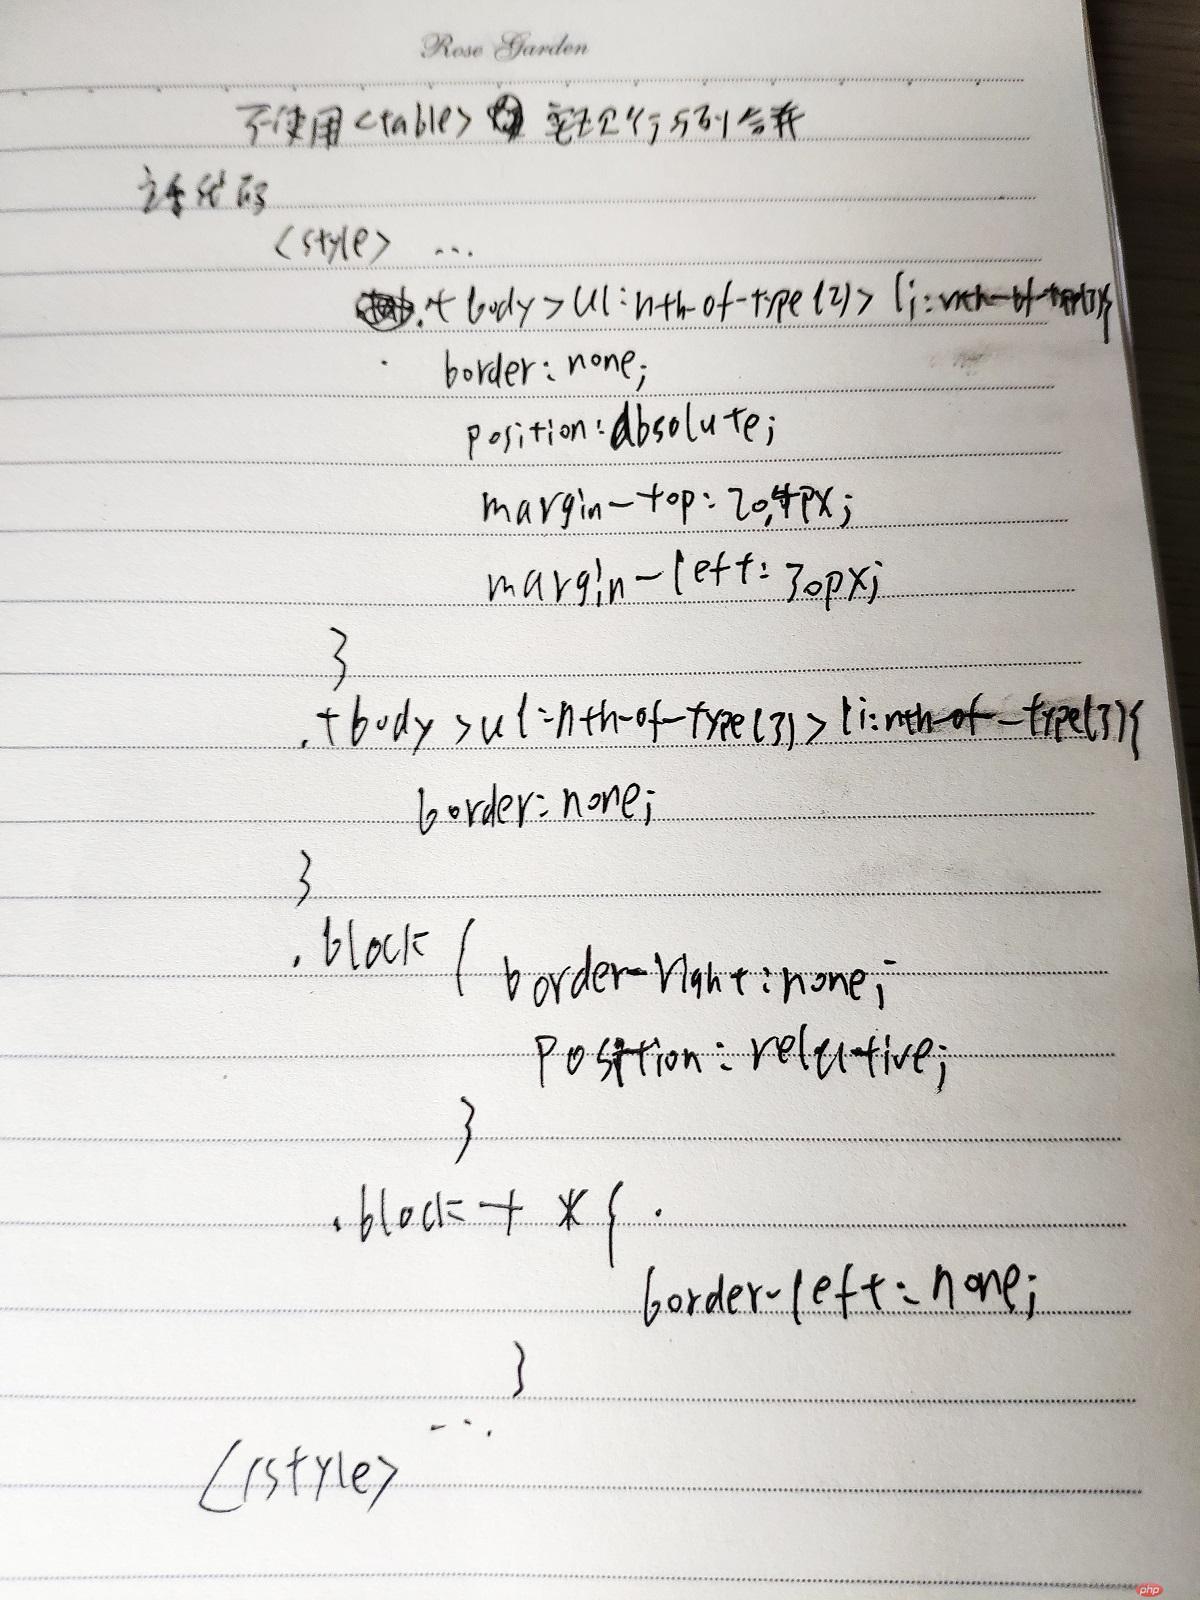 Rose Garden
不使用<table> 实现行与列合并
主要代码
<style> ...
.tbody>ul:nth-of-type(2)>li:nth-of-type(3){
border:none;
position:absolute;
margin-top:20.4px;
margin-left:30px;
}
.tbody>ul:nth-of-type(3)>li:nth-of-type(3){
border:none;
}
.block{ border-right:none;
position:relative;
}
.block + *{
border-left:none;
}
...
</style>
php